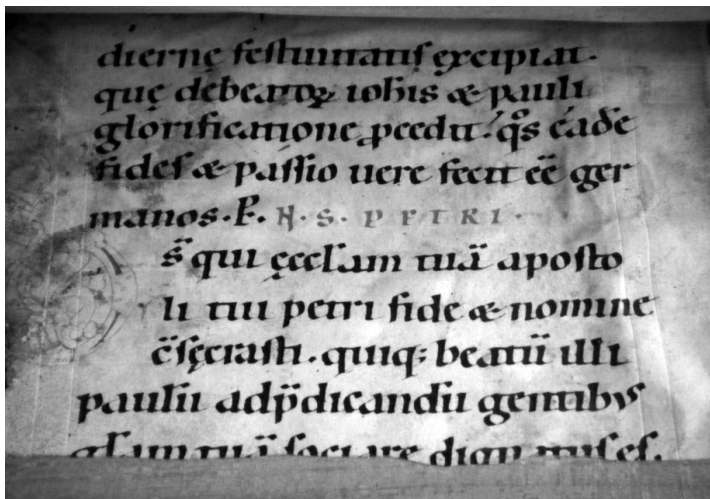 diernę festiuitatis excipiat.
quę debeatoꝝ ioh̅is & pauli
glorificatione ꝓcedit. q̊s eade̅
fides & passio uere fecit ee̅ ger
manos. P. N. S. PETRI.
s̅ qui ęccl̅am tua̅ aposto
li tui petri fide & nomine
c̅secrasti. quiq; beatu̅ illi
paulu̅ adp̅dicandu̅ gentibus
gl̅am tua̅ sociare dignatus es.